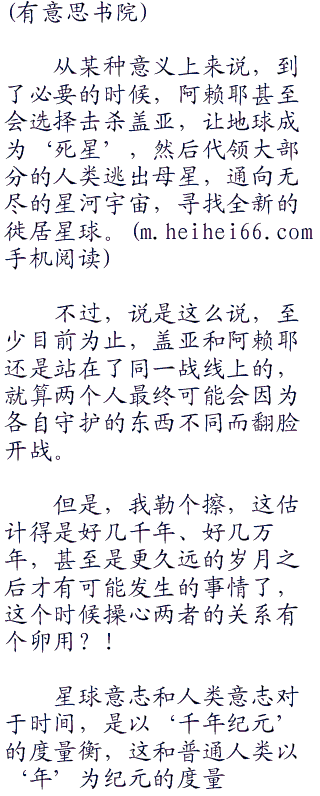 (有意思书院)
从某种意义上来说，到
了必要的时候，阿赖耶甚至
会选择击杀盖亚，让地球成
为‘死星’，然后代领大部
分的人类逃出母星，通向无
尽的星河宇宙，寻找全新的
徙居星球。(m.heihei66.com
手机阅读)
不过，说是这么说，至
少目前为止，盖亚和阿赖耶
还是站在了同一战线上的，
就算两个人最终可能会因为
各自守护的东西不同而翻脸
开战。
但是，我勒个擦，这估
计得是好几千年、好几万
年，甚至是更久远的岁月之
后才有可能发生的事情了，
这个时候操心两者的关系有
个卵用？！
星球意志和人类意志对
于时间，是以‘千年纪元’
的度量衡，这和普通人类以
‘年’为纪元的度量